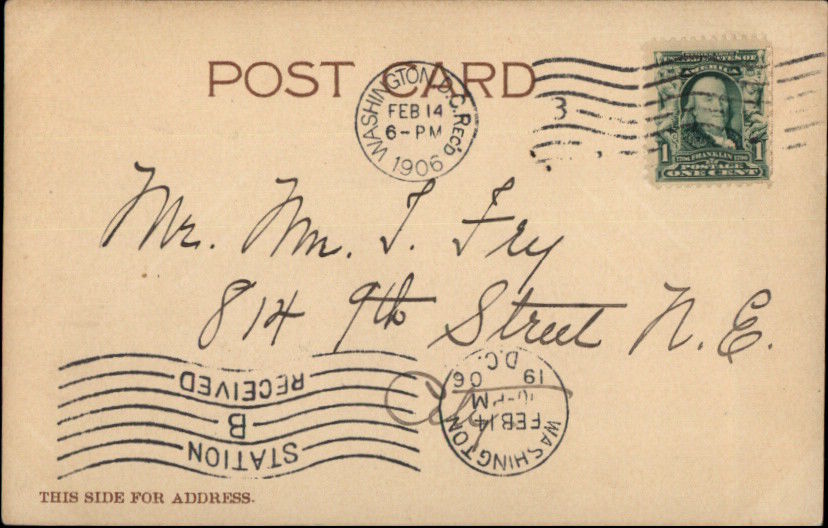 POST CARD
WASHINGTON D.C. REC'D.
FEB 14
6-PM
1906
3
UNITED STATES OF
AMERICA
1706 FRANKLIN 1790
POSTAGE
1 ONE CENT 1
Mr. Wm. T. Fry
814 9th Street N.E.
City
STATION
B
RECEIVED
WASHINGTON
FEB 14
10-PM
19 06
D.C.
THIS SIDE FOR ADDRESS.